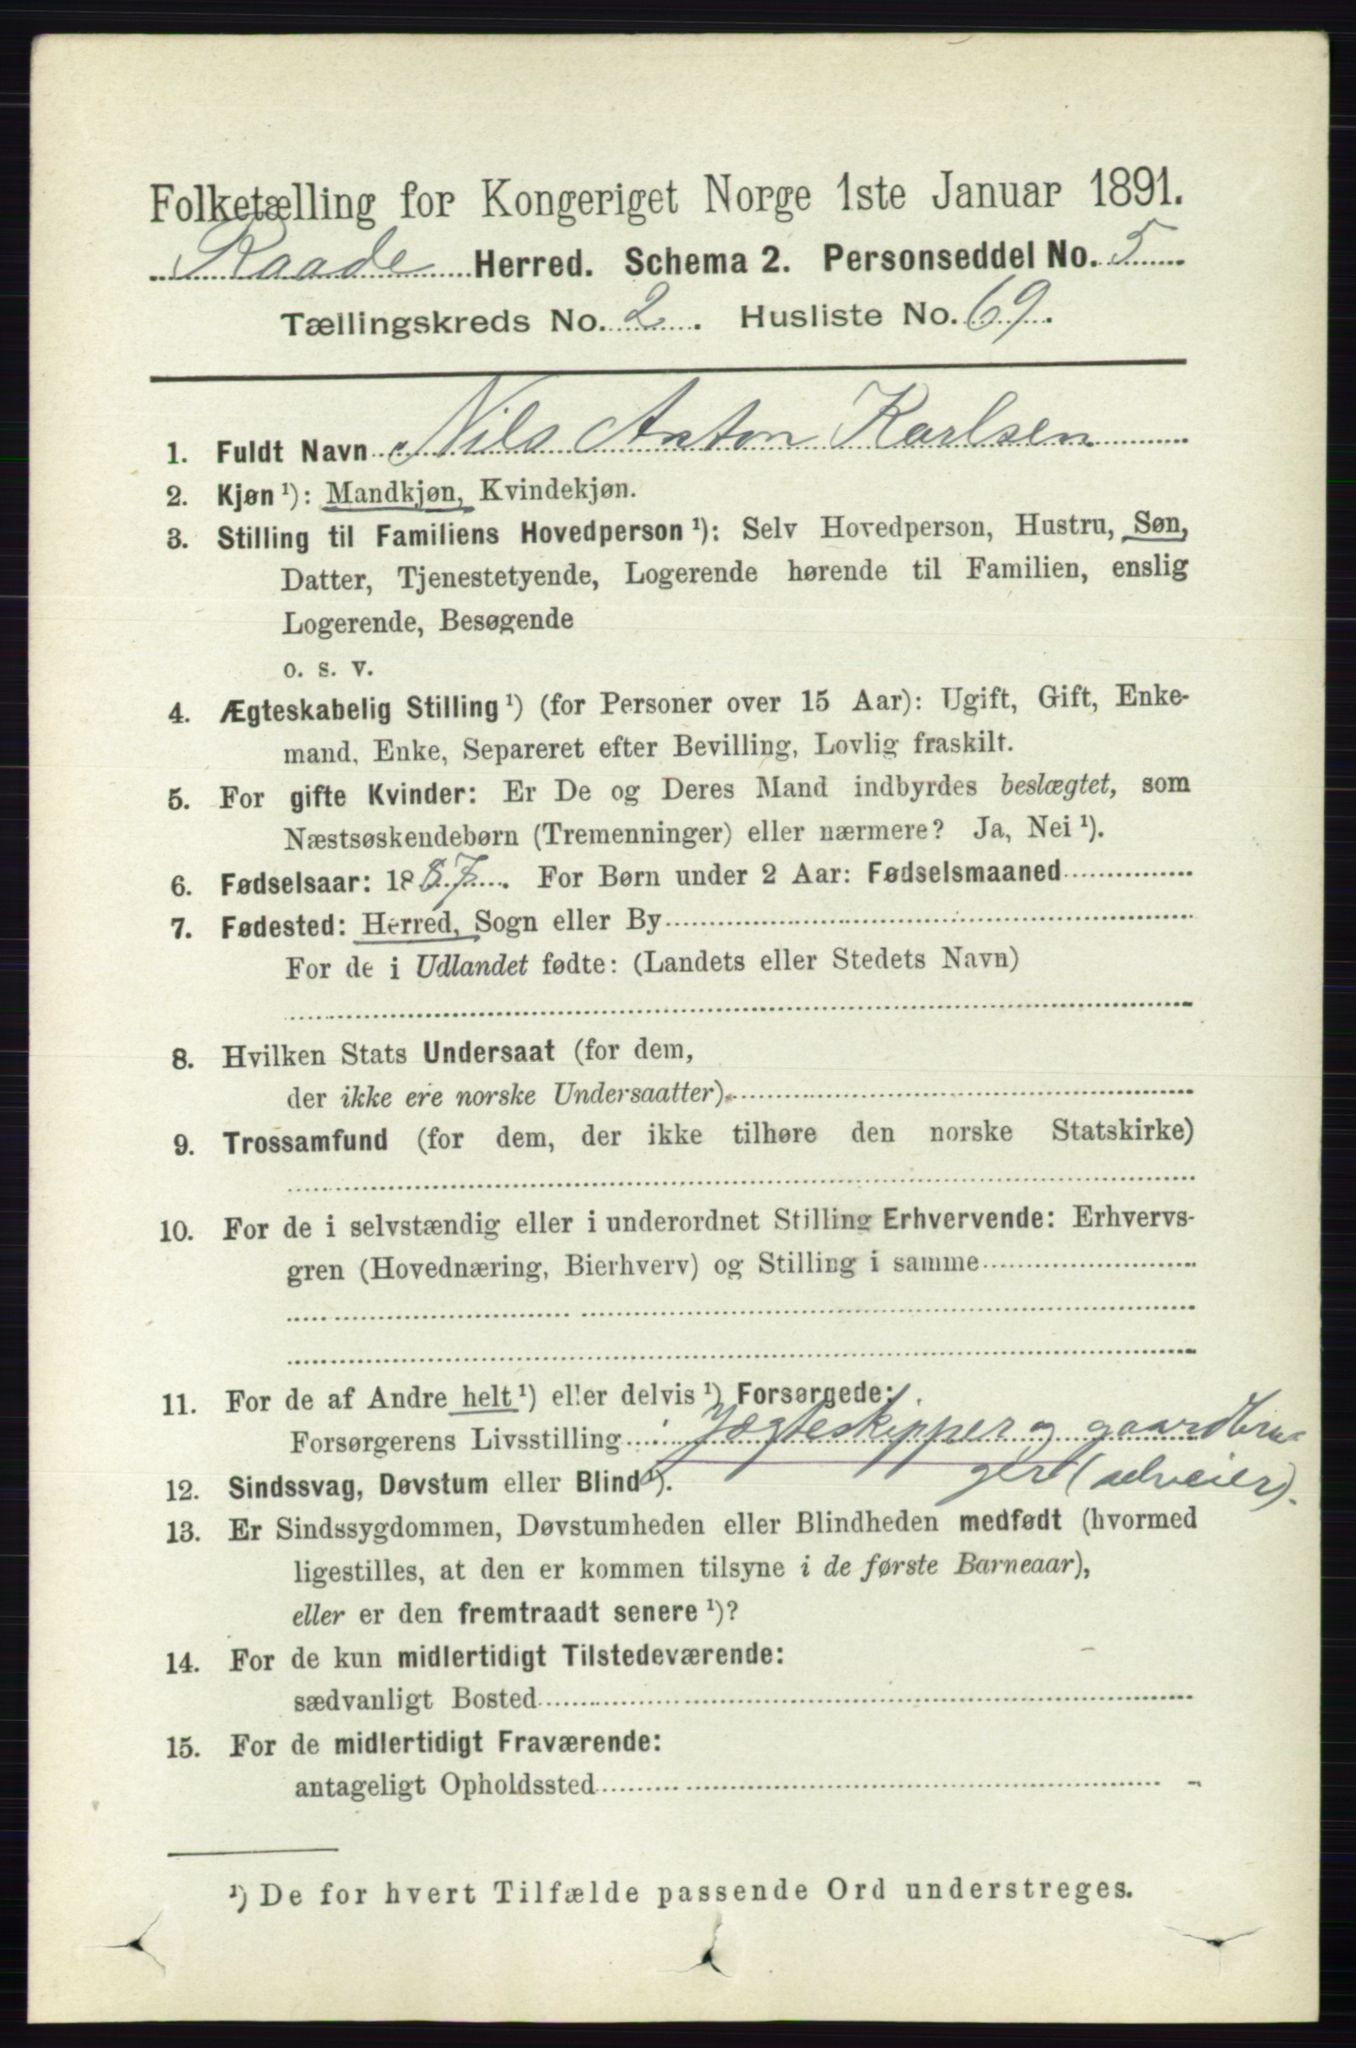 Folketælling for Kongeriget Norge 1ste Januar 1891.
Raade Herred. Schema 2. Personseddel No. 5
Tællingskreds No. 2. Husliste No. 69.
1. Fuldt Navn Nils Anton Karlsen
2. Kjøn ¹): Mandkjøn, Kvindekjøn.
3. Stilling til Familiens Hovedperson ¹): Selv Hovedperson, Hustru, Søn,
Datter, Tjenestetyende, Logerende hørende til Familien, enslig
Logerende, Besøgende
o. s. v.
4. Ægteskabelig Stilling ¹) (for Personer over 15 Aar): Ugift, Gift, Enke-
mand, Enke, Separeret efter Bevilling, Lovlig fraskilt.
5. For gifte Kvinder: Er De og Deres Mand indbyrdes beslægtet, som
Næstsøskendebørn (Tremenninger) eller nærmere? Ja, Nei ¹).
6. Fødselsaar: 1887. For Børn under 2 Aar: Fødselsmaaned
7. Fødested: Herred, Sogn eller By
For de i Udlandet fødte: (Landets eller Stedets Navn)
8. Hvilken Stats Undersaat (for dem,
der ikke ere norske Undersaatter)
9. Trossamfund (for dem, der ikke tilhøre den norske Statskirke)
10. For de i selvstændig eller i underordnet Stilling Erhvervende: Erhvervs-
gren (Hovednæring, Bierhverv) og Stilling i samme
11. For de af Andre helt ¹) eller delvis ¹) Forsørgede:
Forsørgerens Livsstilling Jægteskipper og gaardbru-
ger (selveier).
12. Sindssvag, Døvstum eller Blind ¹).
13. Er Sindssygdommen, Døvstumheden eller Blindheden medfødt (hvormed
ligestilles, at den er kommen tilsyne i de første Barneaar),
eller er den fremtraadt senere ¹)?
14. For de kun midlertidigt Tilstedeværende:
sædvanligt Bosted
15. For de midlertidigt Fraværende:
antageligt Opholdssted
¹) De for hvert Tilfælde passende Ord understreges.